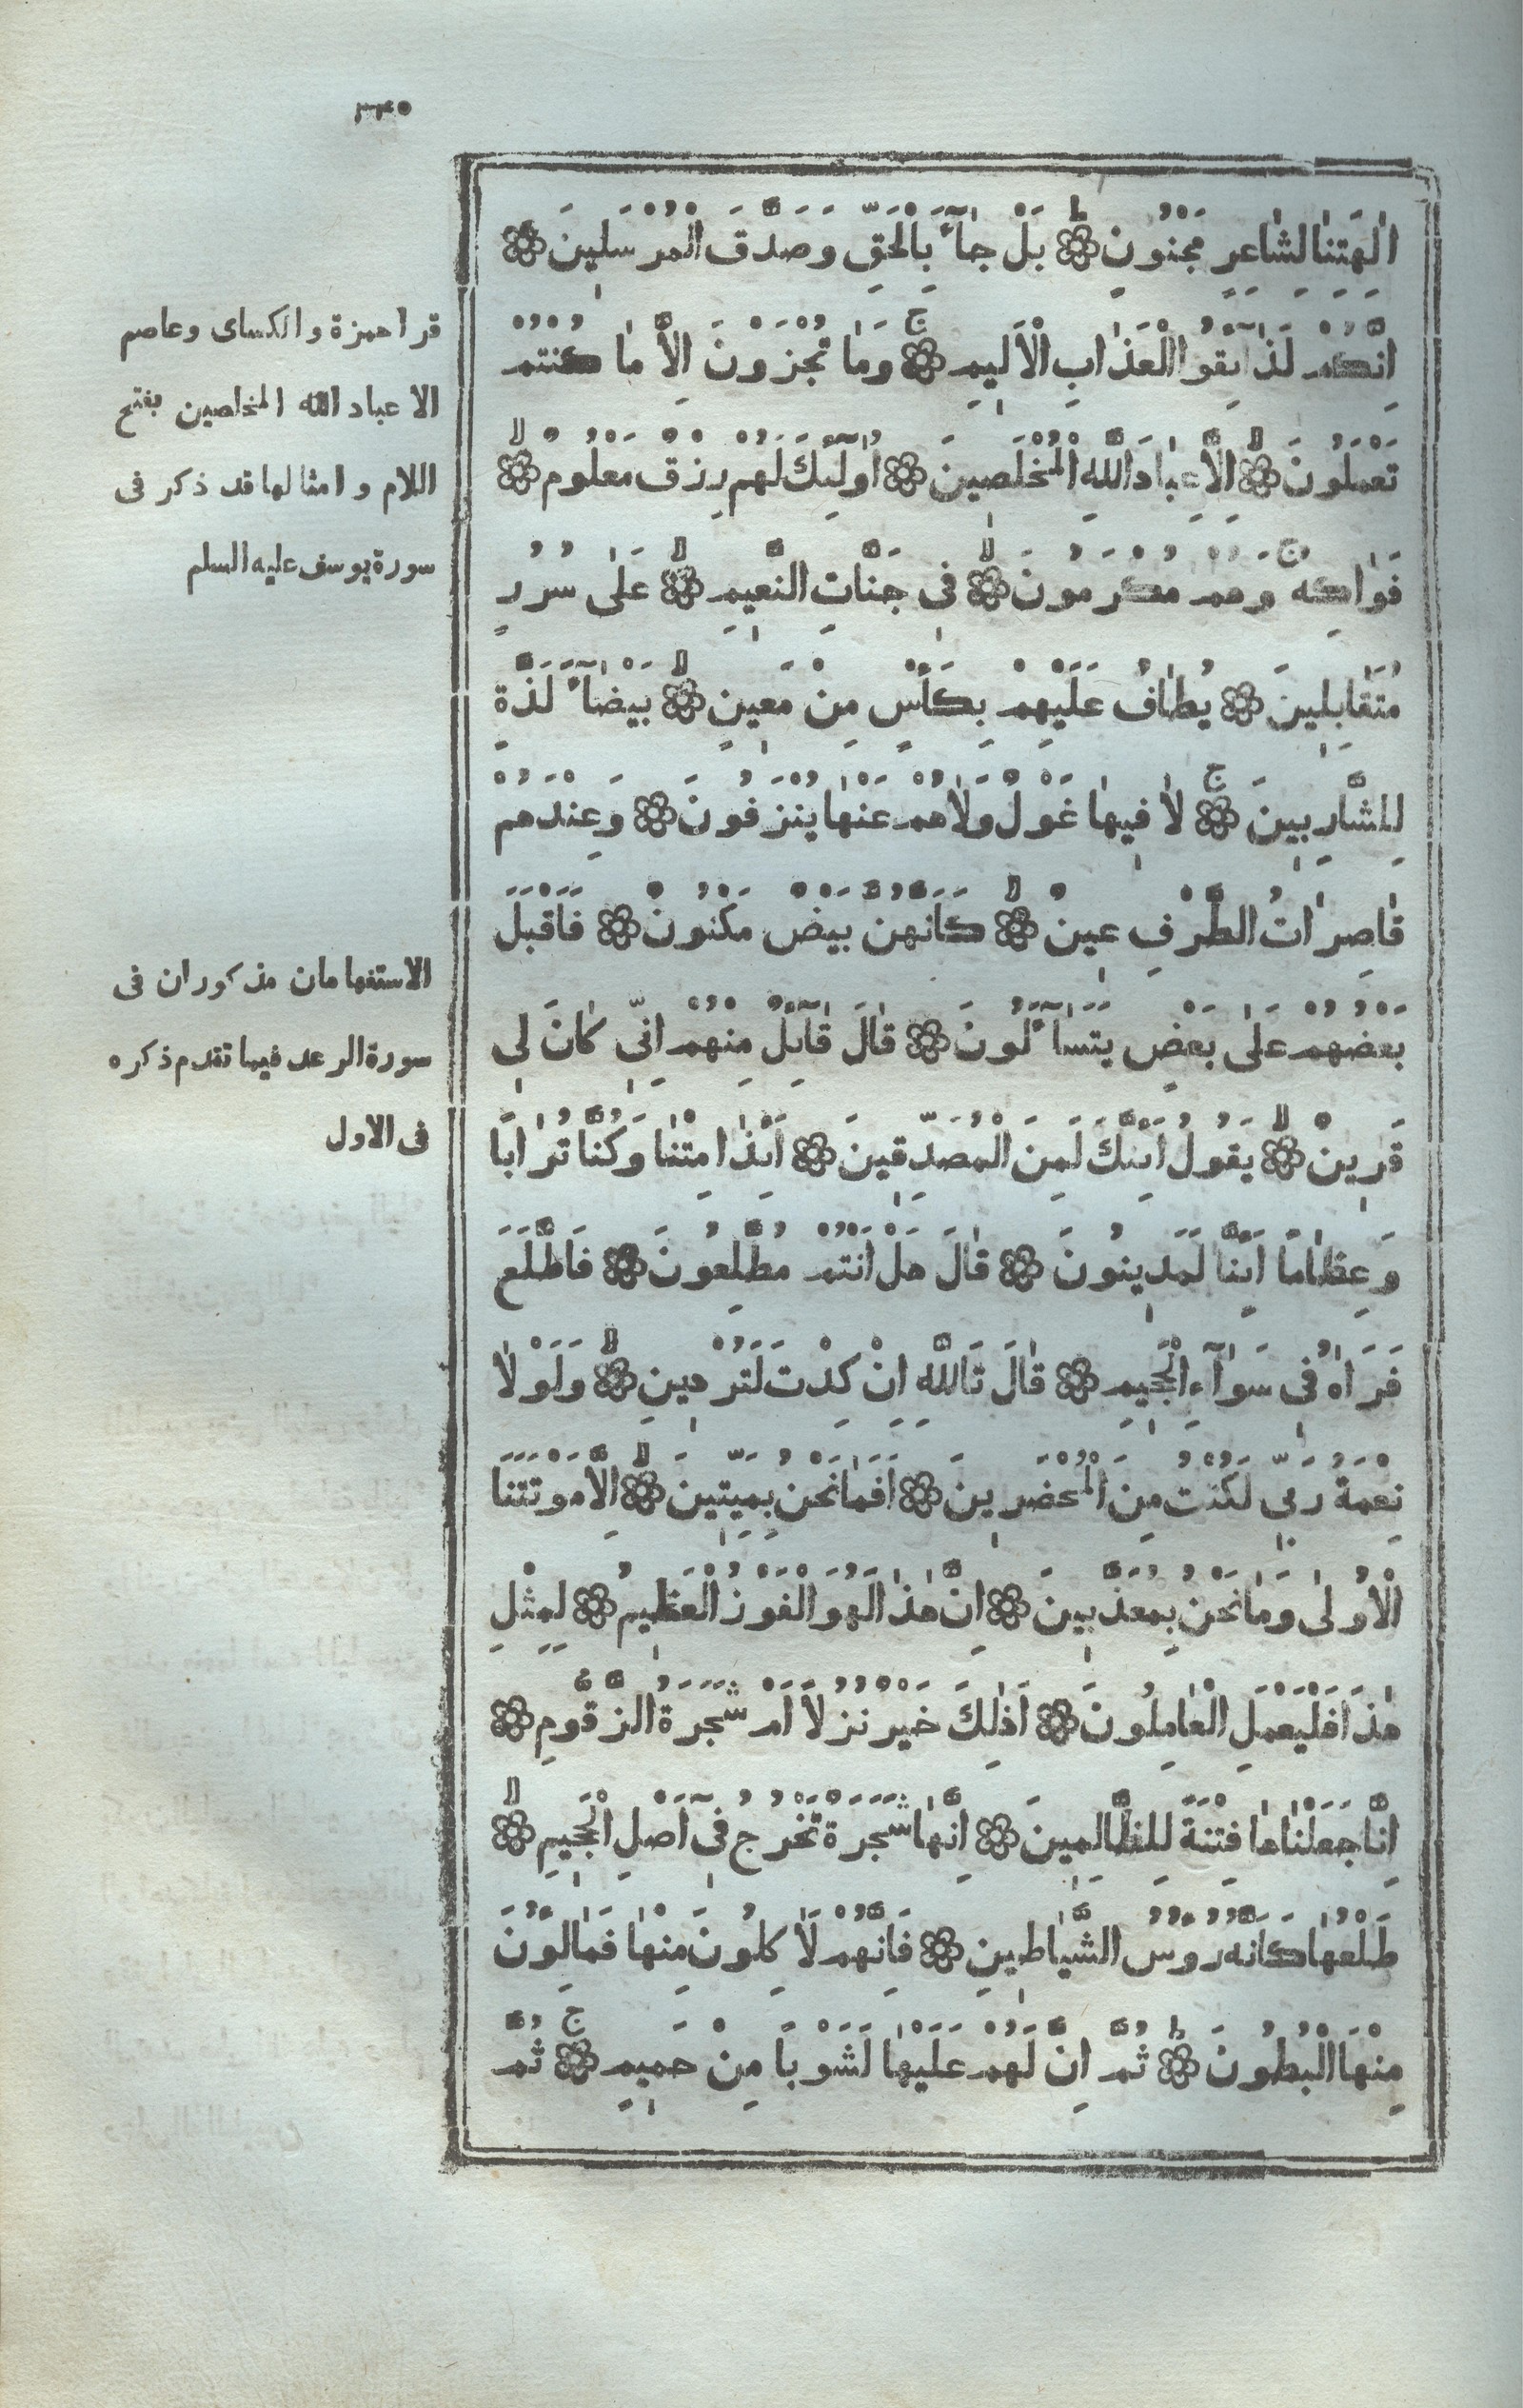 ٣٤٠
اٰلِهَتِنَا لِشَاعِرٍ مَجْنُونٍ ۞ بَلْ جَآءَ بِالْحَقِّ وَصَدَّقَ الْمُرْسَلِينَ ۞
اِنَّكُمْ لَذَآئِقُوا الْعَذَابِ الْاَلِيمِ ۞ وَمَا تُجْزَوْنَ اِلَّا مَا كُنْتُمْ
تَعْمَلُونَ ۞ اِلَّا عِبَادَ اللَّهِ الْمُخْلَصِينَ ۞ اُولٰٓئِكَ لَهُمْ رِزْقٌ مَعْلُومٌ ۞
فَوَاكِهُ وَهُمْ مُكْرَمُونَ ۞ فِى جَنَّاتِ النَّعِيمِ ۞ عَلٰى سُرُرٍ
مُتَقَابِلِينَ ۞ يُطَافُ عَلَيْهِمْ بِكَأْسٍ مِنْ مَعِينٍ ۞ بَيْضَآءَ لَذَّةٍ
لِلشَّارِبِينَ ۞ لَا فِيهَا غَوْلٌ وَلَا هُمْ عَنْهَا يُنْزَفُونَ ۞ وَعِنْدَهُمْ
قَاصِرَاتُ الطَّرْفِ عِينٌ ۞ كَاَنَّهُنَّ بَيْضٌ مَكْنُونٌ ۞ فَاَقْبَلَ
بَعْضُهُمْ عَلٰى بَعْضٍ يَتَسَآءَلُونَ ۞ قَالَ قَآئِلٌ مِنْهُمْ اِنِّى كَانَ لِى
قَرِينٌ ۞ يَقُولُ اَئِنَّكَ لَمِنَ الْمُصَدِّقِينَ ۞ اَئِذَا مِتْنَا وَكُنَّا تُرَابًا
وَعِظَامًا اَئِنَّا لَمَدِينُونَ ۞ قَالَ هَلْ اَنْتُمْ مُطَّلِعُونَ ۞ فَاطَّلَعَ
فَرَاٰهُ فِى سَوَآءِ الْجَحِيمِ ۞ قَالَ تَاللَّهِ اِنْ كِدْتَ لَتُرْدِينِ ۞ وَلَوْلَا
نِعْمَةُ رَبِّى لَكُنْتُ مِنَ الْمُحْضَرِينَ ۞ اَفَمَا نَحْنُ بِمَيِّتِينَ ۞ اِلَّا مَوْتَتَنَا
الْاُولٰى وَمَا نَحْنُ بِمُعَذَّبِينَ ۞ اِنَّ هٰذَا لَهُوَ الْفَوْزُ الْعَظِيمُ ۞ لِمِثْلِ
هٰذَا فَلْيَعْمَلِ الْعَامِلُونَ ۞ اَذٰلِكَ خَيْرٌ نُزُلًا اَمْ شَجَرَةُ الزَّقُّومِ ۞
اِنَّا جَعَلْنَاهَا فِتْنَةً لِلظَّالِمِينَ ۞ اِنَّهَا شَجَرَةٌ تَخْرُجُ فِىٓ اَصْلِ الْجَحِيمِ ۞
طَلْعُهَا كَاَنَّهُ رُؤُسُ الشَّيَاطِينِ ۞ فَاِنَّهُمْ لَاٰكِلُونَ مِنْهَا فَمَالِؤُنَ
مِنْهَا الْبُطُونَ ۞ ثُمَّ اِنَّ لَهُمْ عَلَيْهَا لَشَوْبًا مِنْ حَمِيمٍ ۞ ثُمَّ
قرا حمزة والكساى وعاصم
الا عباد الله المخلصين بفتح
اللام وامثالها قد ذكر فى
سورة يوسف عليه السلم
الاستفهامان مذكوران فى
سورة الرعد فيما تقدم ذكره
فى الاول